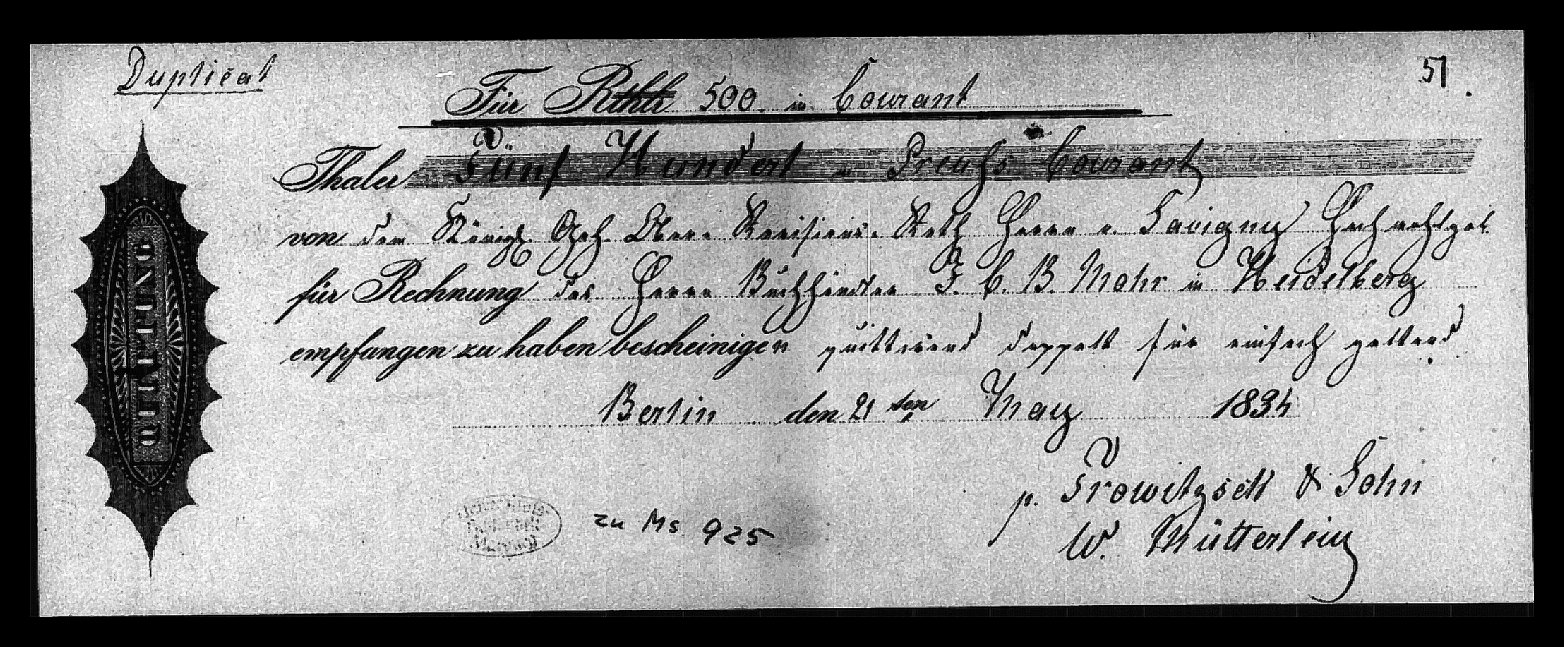 Duplicat
51.
Für Rthlr 500. in Courant
Thaler Fünf Hundert in Preuſs Courant
von dem Königl. Geh. Ober. Revisions. Rath Herrn v. Savigny Hochwohlgeb
für Rechnung des Herrn Buchhändler J. C. B. Mohr in Heidelberg
empfangen zu haben bescheinigen quittirend doppelt für einfach geltend
Berlin den 21 ten May 1834
QUITTUNG
p. Trowitzsch & Sohn
W. Mütterlein
zu Ms 925